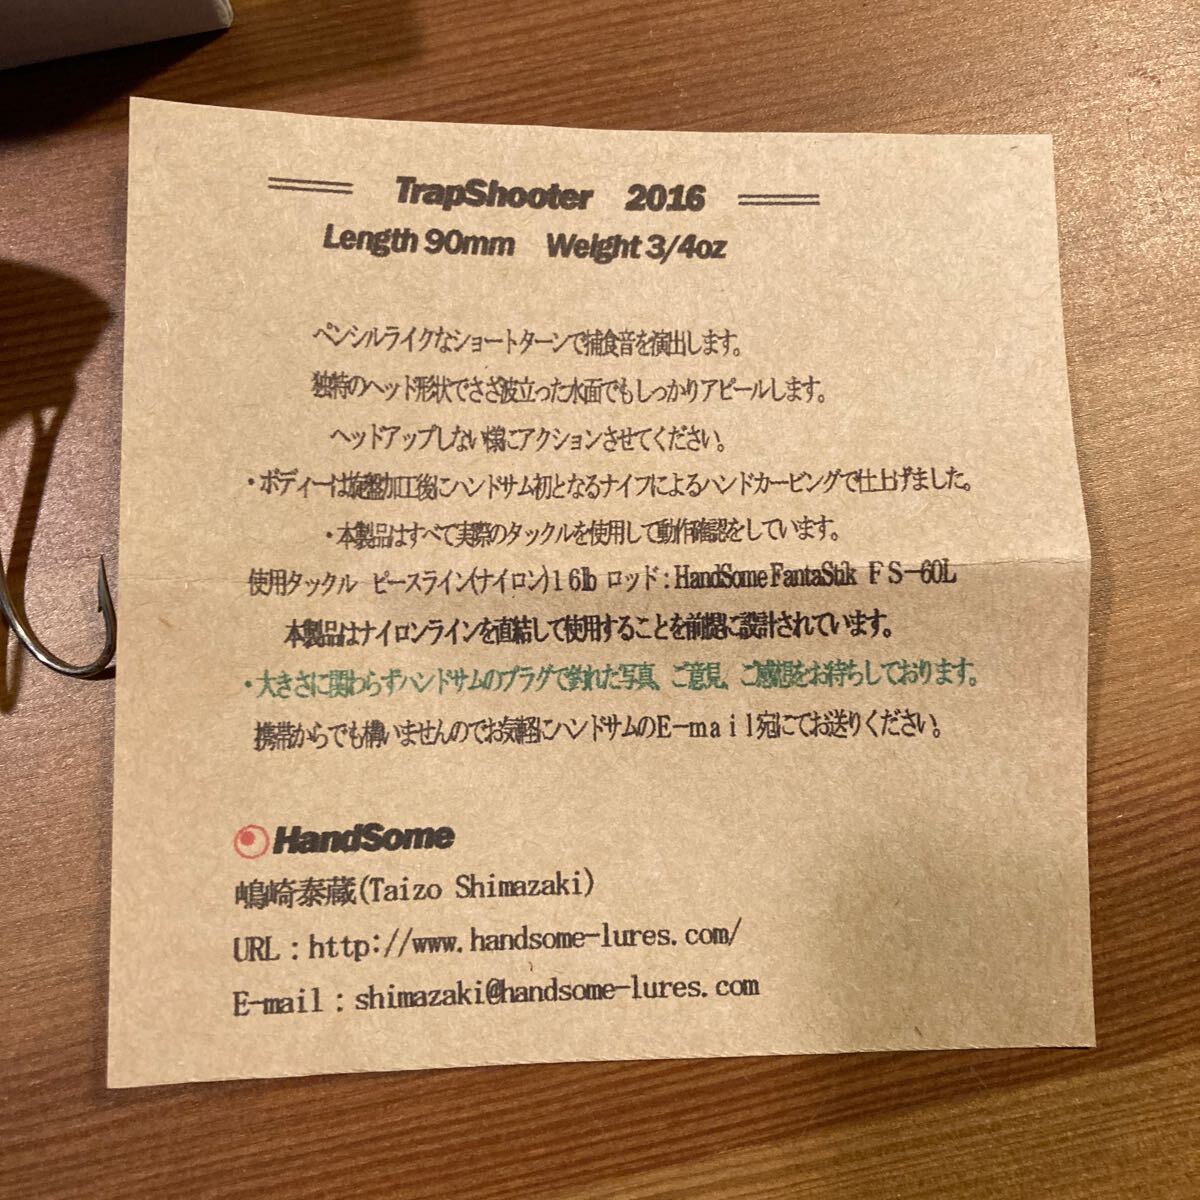 TrapShooter 2016
Length 90mm Weight 3/4oz
ペンシルライクなショートターンで捕食音を演出します。
独特のヘッド形状でさざ波立った水面でもしっかりアピールします。
ヘッドアップしない様にアクションさせてください。
・ボディーは旋盤加工後にハンドサム初となるナイフによるハンドカービングで仕上げました。
・本製品はすべて実際のタックルを使用して動作確認をしています。
使用タックル ピースライン(ナイロン)16lb ロッド:HandSome FantaStik FS-60L
本製品はナイロンラインを直結して使用することを前提に設計されています。
・大きさに関わらずハンドサムのプラグで釣れた写真、ご意見、ご感想をお待ちしております。
携帯からでも構いませんのでお気軽にハンドサムのE-mail宛にてお送りください。
HandSome
嶋崎泰蔵(Taizo Shimazaki)
URL:http://www.handsome-lures.com/
E-mail:shimazaki@handsome-lures.com